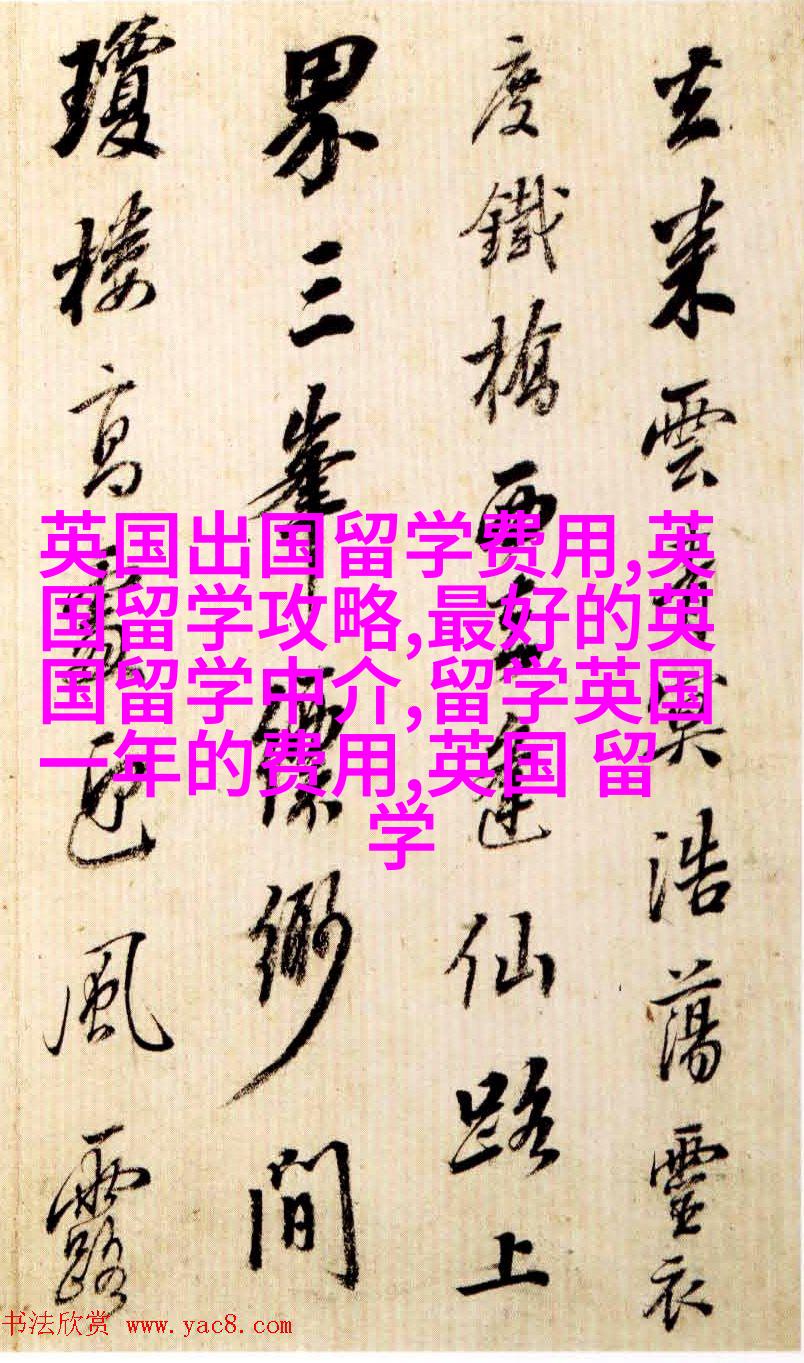 去来雲浩蕩靈衣
度鐵橋西仙路上
界三峯縹緲間
瓊樓高處風露
英国出国留学费用,英
国留学攻略,最好的英
国留学中介,留学英国
一年的费用,英国 留
学
书法欣赏 www.yac8.com